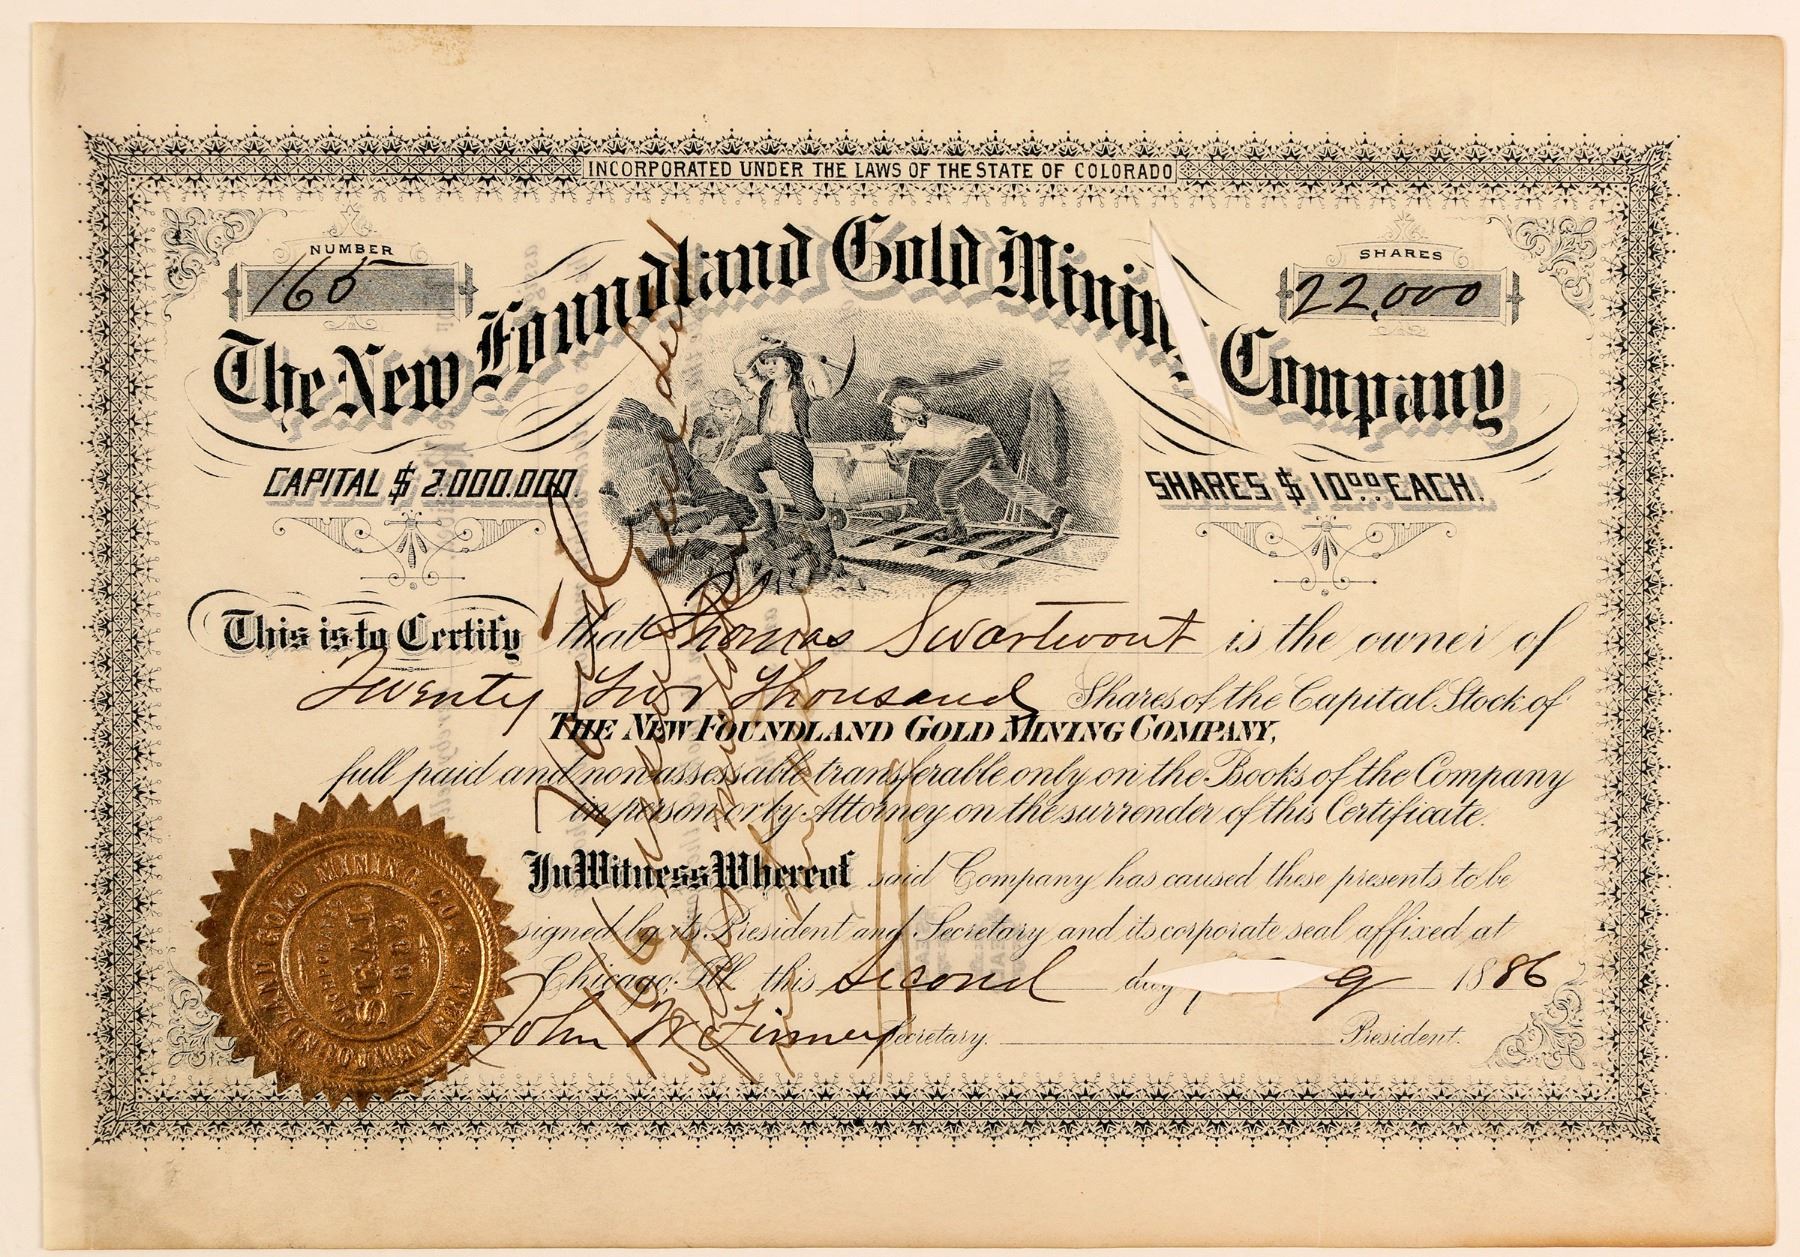 INCORPORATED UNDER THE LAWS OF THE STATE OF COLORADO
NUMBER
165
SHARES
22,000
The New Foundland Gold Mining Company
CAPITAL $ 2.000.000.
SHARES $ 10.00 EACH.
This is to Certify that Thomas Swartwout is the owner of
Twenty Two Thousand Shares of the Capital Stock of
THE NEW FOUNDLAND GOLD MINING COMPANY,
full paid and non assessable transferable only on the Books of the Company
in person or by Attorney on the surrender of this Certificate.
In Witness Whereof said Company has caused these presents to be
signed by its President and Secretary and its corporate seal affixed at
Chicago, Ill. this Second day 1886
John McFinney Secretary. President.
NEW FOUNDLAND GOLD MINING CO.
SEAL